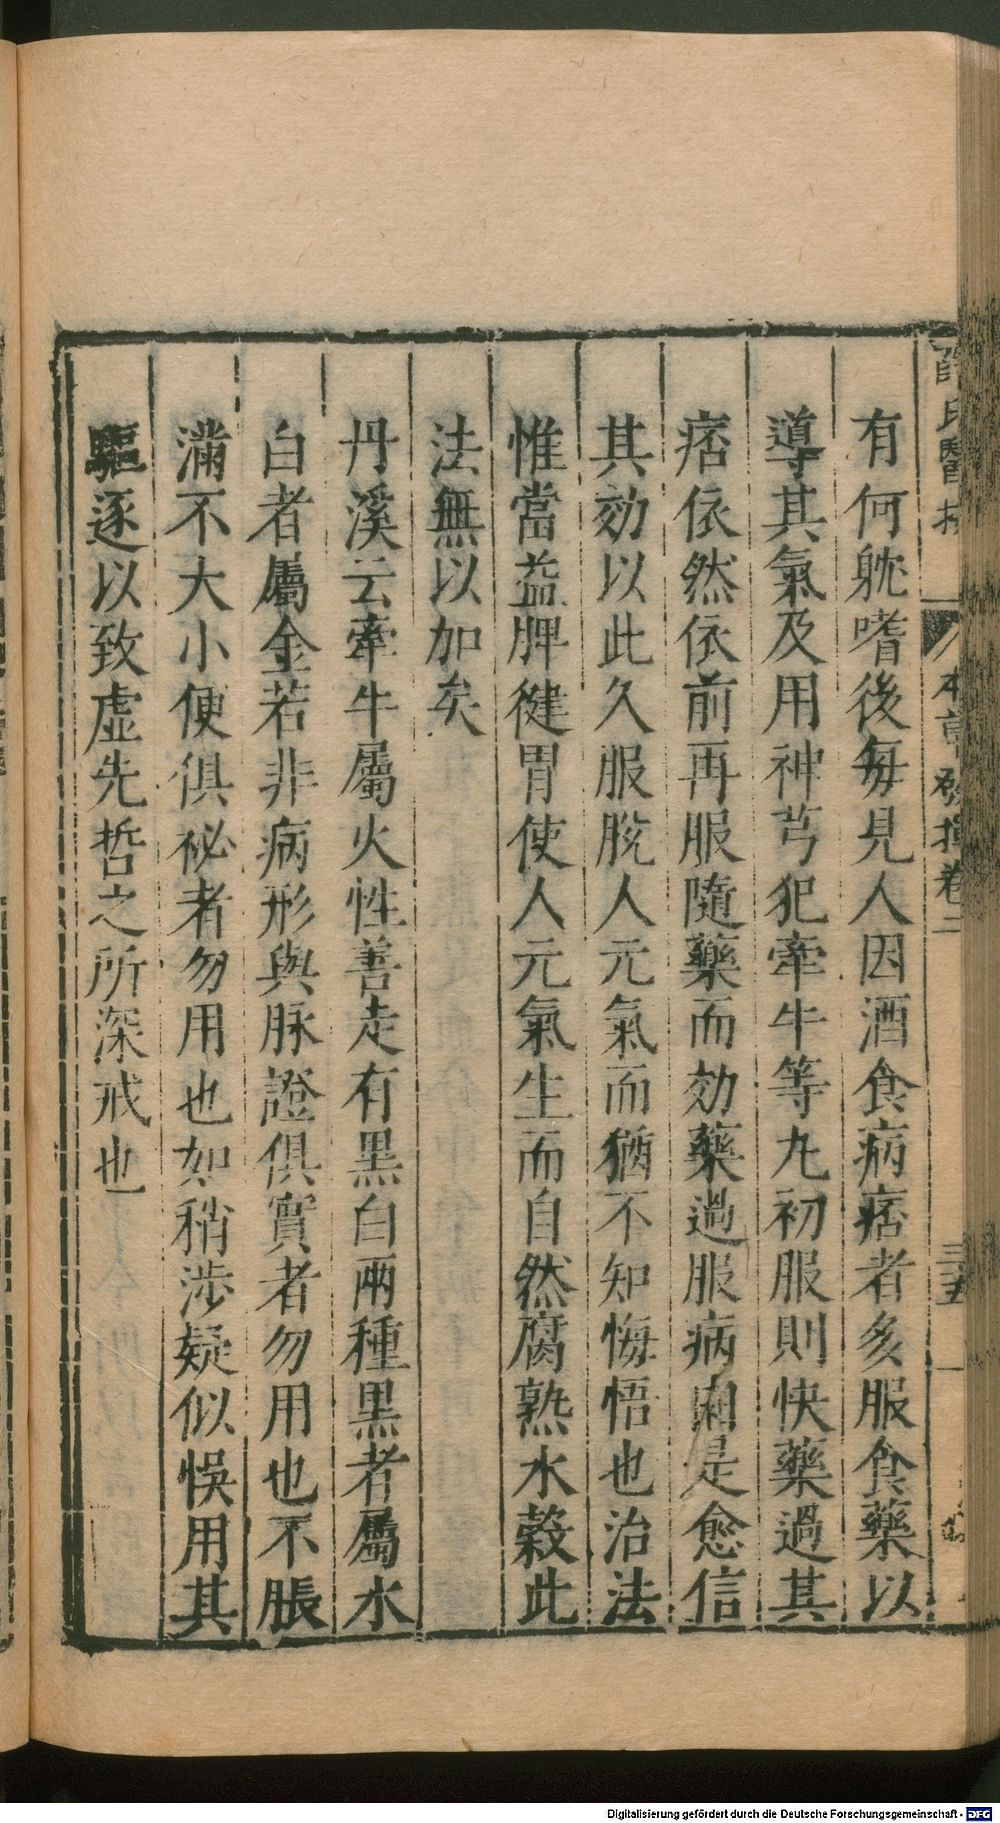 薛氏醫按
本草發揮卷二
三五
有何躭嗜後每見人因酒食病痞者多服食藥以
導其氣及用神芎犯牽牛等丸初服則快藥過其
痞依然依前再服隨藥而効藥過服病由是愈信
其効以此久服脫人元氣而猶不知悔悟也治法
惟當益脾健胃使人元氣生而自然腐熟水穀此
法無以加矣
丹溪云牽牛屬火性善走有黒白兩種黒者屬水
白者屬金若非病形與脉證俱實者勿用也不脹
滿不大小便俱祕者勿用也如稍涉疑似悞用其
驅逐以致虛先哲之所深戒也
Digitalisierung gefördert durch die Deutsche Forschungsgemeinschaft - DFG